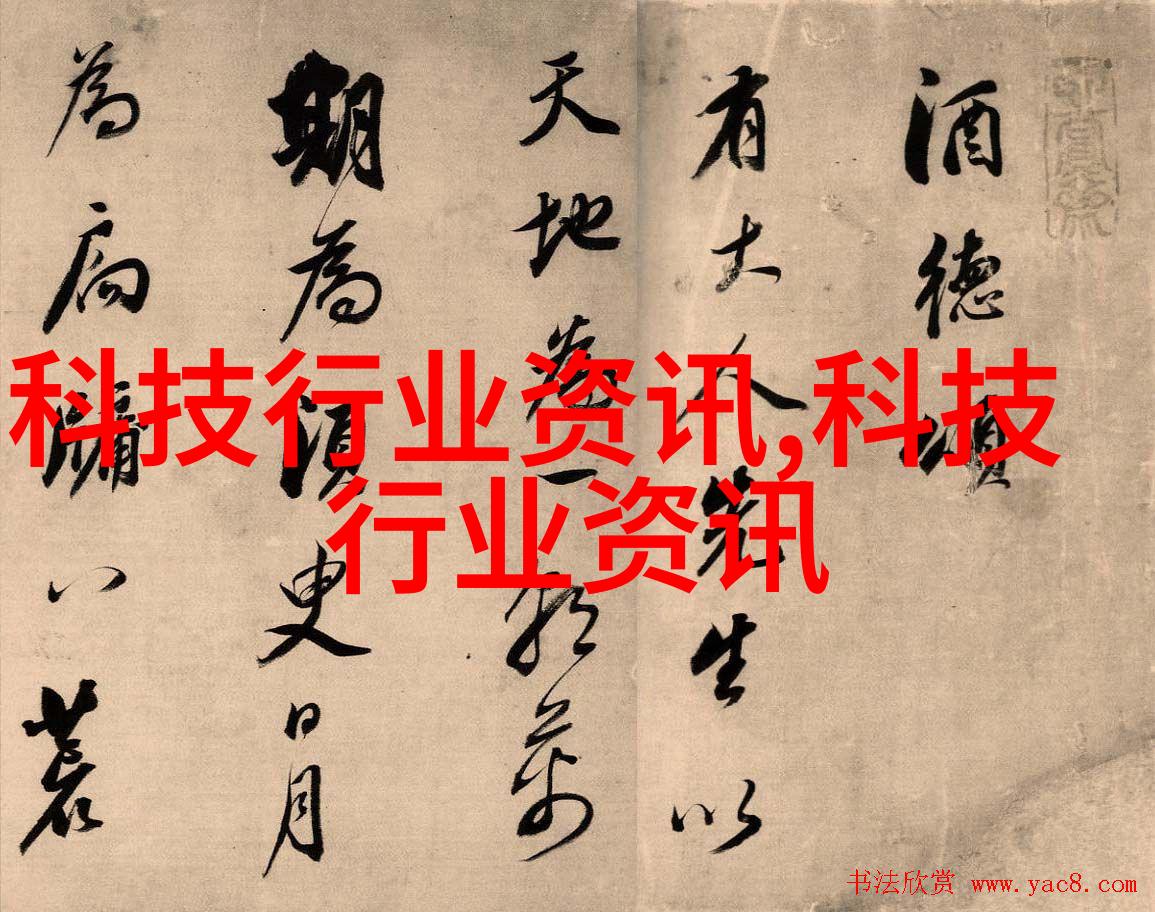 酒德頌
有大人先生以
天地為一朝萬
期為須臾日月
為扃牖八荒
科技行业资讯,科技
行业资讯
书法欣赏 www.yac8.com